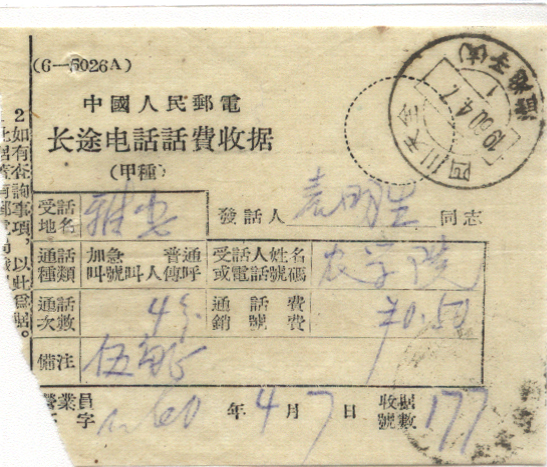 (6—5026A)
中國人民郵電
长途电話話費收据
(甲種)
受話地名 雅安 發話人 同志
通話種類 加急 普通 叫號 叫人 傳呼 受話人姓名或電話號碼 农学院
通話次數 4分 通話費 銷號費 ¥0.50
備注 伍角
營業員 字 60 年 4 月 7 日 收据號數 177
2 如有查詢事項，以此爲据。
四川 19 60.4.7 1